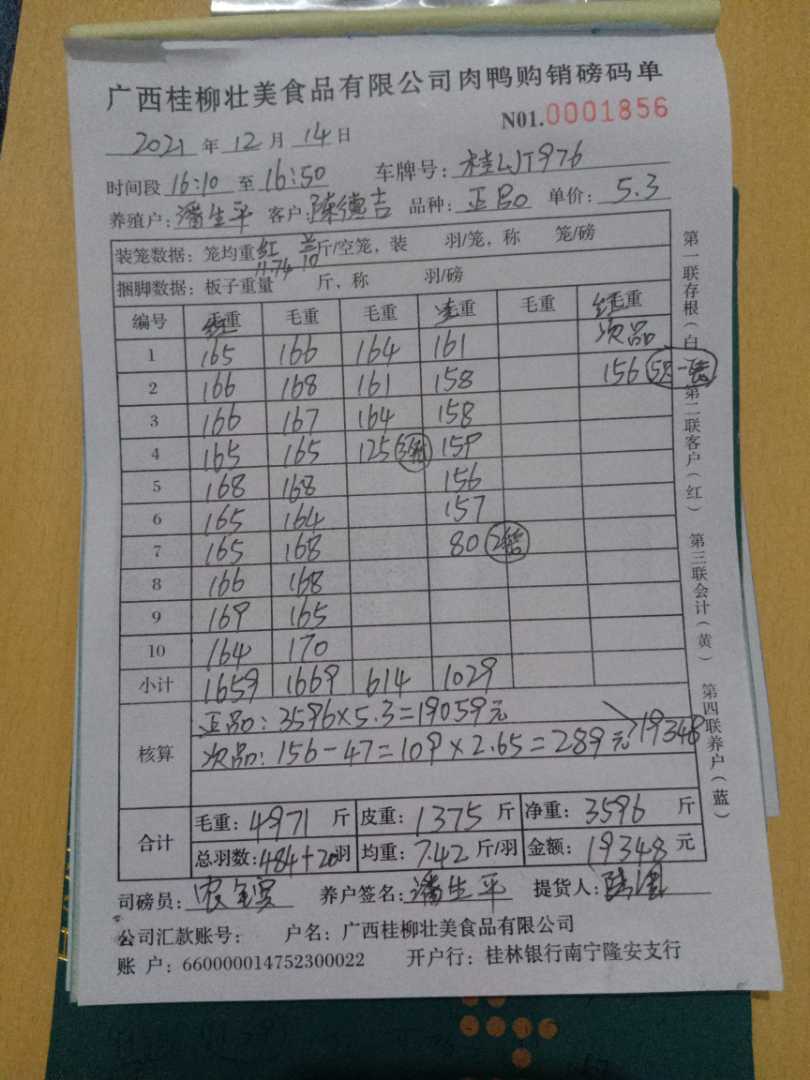 广西桂柳壮美食品有限公司肉鸭购销磅码单
N01.0001856
2021年12月14日
时间段16:10至16:50 车牌号:桂LJT976
养殖户:潘生平 客户:陈德吉 品种:正品 单价:5.3
装笼数据:笼均重 红 兰 斤/空笼,装 羽/笼,称 笼/磅
11.74 10
捆脚数据:板子重量 斤,称 羽/磅
编号 毛重 毛重 毛重 毛重 毛重 毛重
次品
1 165 166 164 161
2 166 168 161 158 156
3 166 167 164 158
4 165 165 125 159
5 168 168 156
6 165 164 157
7 165 168 80
8 166 168
9 169 165
10 164 170
小计 1659 1669 614 1029
核算 正品:3596×5.3=19059元
次品:156-47=109×2.65=289元 19348
合计 毛重:4971斤 皮重:1375斤 净重:3596斤
总羽数:484+20羽 均重:7.42斤/羽 金额:19348元
司磅员: 养户签名:潘生平 提货人:
公司汇款账号: 户名:广西桂柳壮美食品有限公司
账 户:660000014752300022 开户行:桂林银行南宁隆安支行
第一联存根(白) 第二联客户(红) 第三联会计(黄) 第四联养户(蓝)